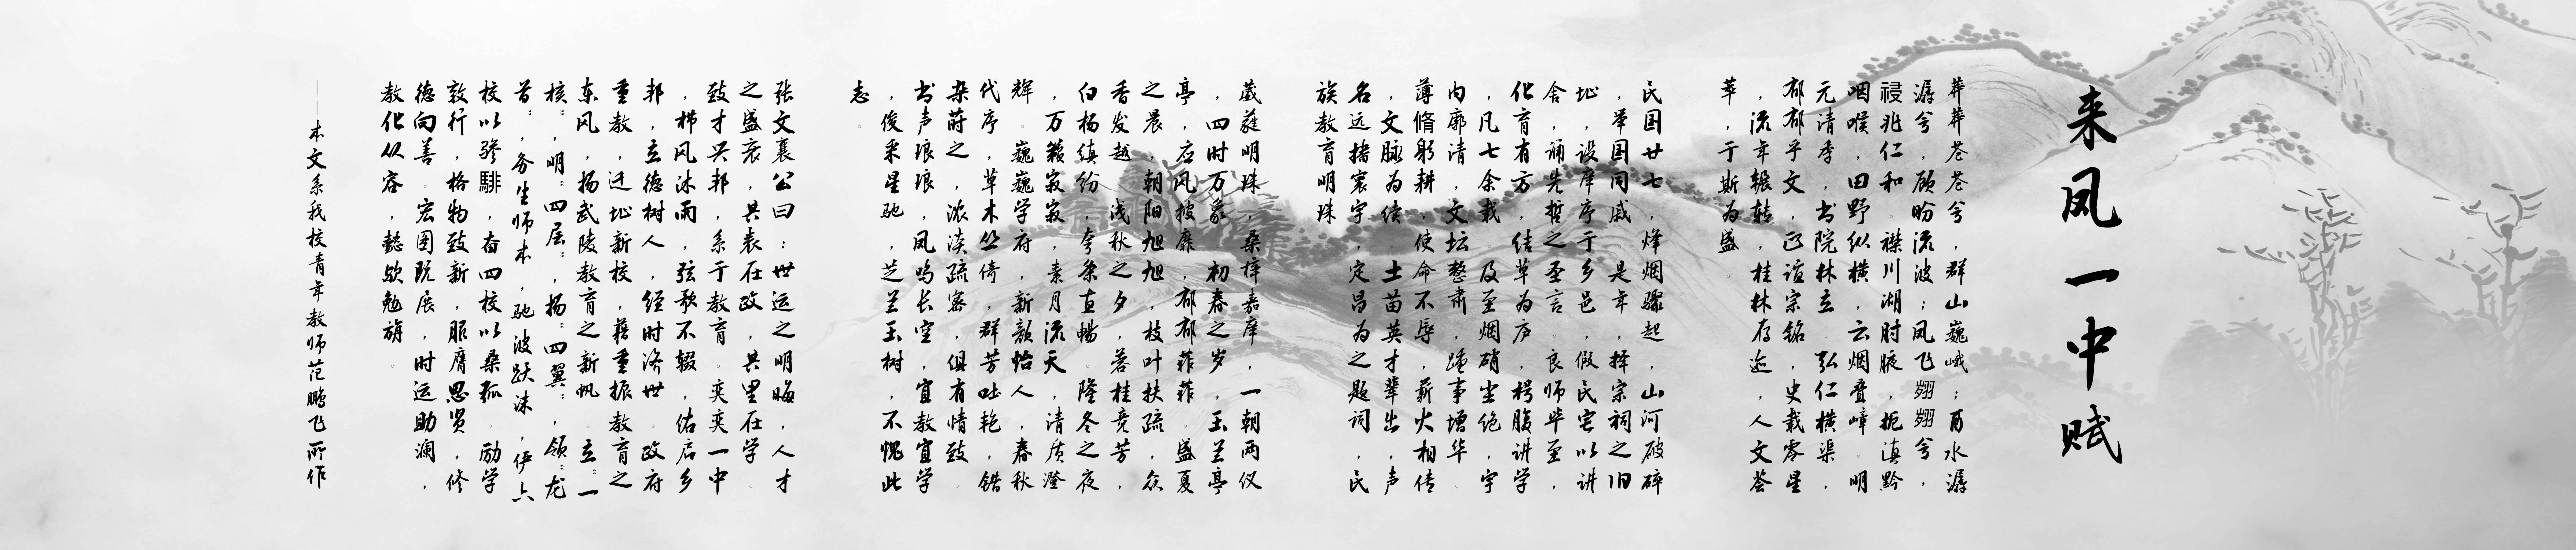 来凤一中赋
莽莽苍苍兮,群山巍峨;酉水潺
潺兮,顾盼流波;凤飞翙翙兮,
祲兆仁和。襟川湖肘腋,扼滇黔
咽喉,田野纵横,云烟叠嶂。明
元清季,书院林立,弘仁横渠,
郁郁乎文,正谊宗铭,史载零星
,流年辗转,桂林存迹,人文荟
萃,于斯为盛。
民国廿七,烽烟骤起,山河破碎
,举国同戚。是年,择宗祠之旧
址,设庠序于乡邑,假民宅以讲
舍,诵先哲之圣言。良师毕至,
化育有方,结草为庐,枵腹讲学
,凡七余载。及至烟硝尘绝,宇
内廓清,文坛整肃,踵事增华。
薄脩躬耕,使命不辱,薪火相传
,文脉为续。土苗英才辈出,声
名远播寰宇,定昌为之题词,民
族教育明珠。
葳蕤明珠,桑梓嘉庠,一朝两仪
,四时万象。初春之岁,玉兰亭
亭,启风披靡,郁郁菲菲。盛夏
之晨,朝阳旭旭,枝叶扶疏,众
香发越。浅秋之夕,善桂竞芳,
白杨缤纷,夸条直畅。隆冬之夜
,万籁寂寂,素月流天,清质澄
辉。巍巍学府,新韵怡人,春秋
代序,草木丛倚,群芳吐艳,错
杂莳之,浓淡疏密,俱有情致。
书声琅琅,凤鸣长空,宜教宜学
,俊采星驰,芝兰玉树,不愧此
志。
张文襄公曰:世运之明晦,人才
之盛衰,其表在政,其里在学。
致才兴邦,系于教育。奕奕一中
,栉风沐雨,弦歌不辍,佑启乡
邦,立德树人,经时济世。政府
重教,迁址新校,藉重振教育之
东风,扬武陵教育之新帆。立“一
核”,明“四层”,扬“四翼”,领“龙
首”,务生师本,驰波跃沫,伊六
校以骖騑,奋四校以桑弧。励学
敦行,格物致新,服膺思贤,修
德向善。宏图既展,时运助澜,
教化从容,懿欤勉旃。
——本文系我校青年教师范鹏飞所作